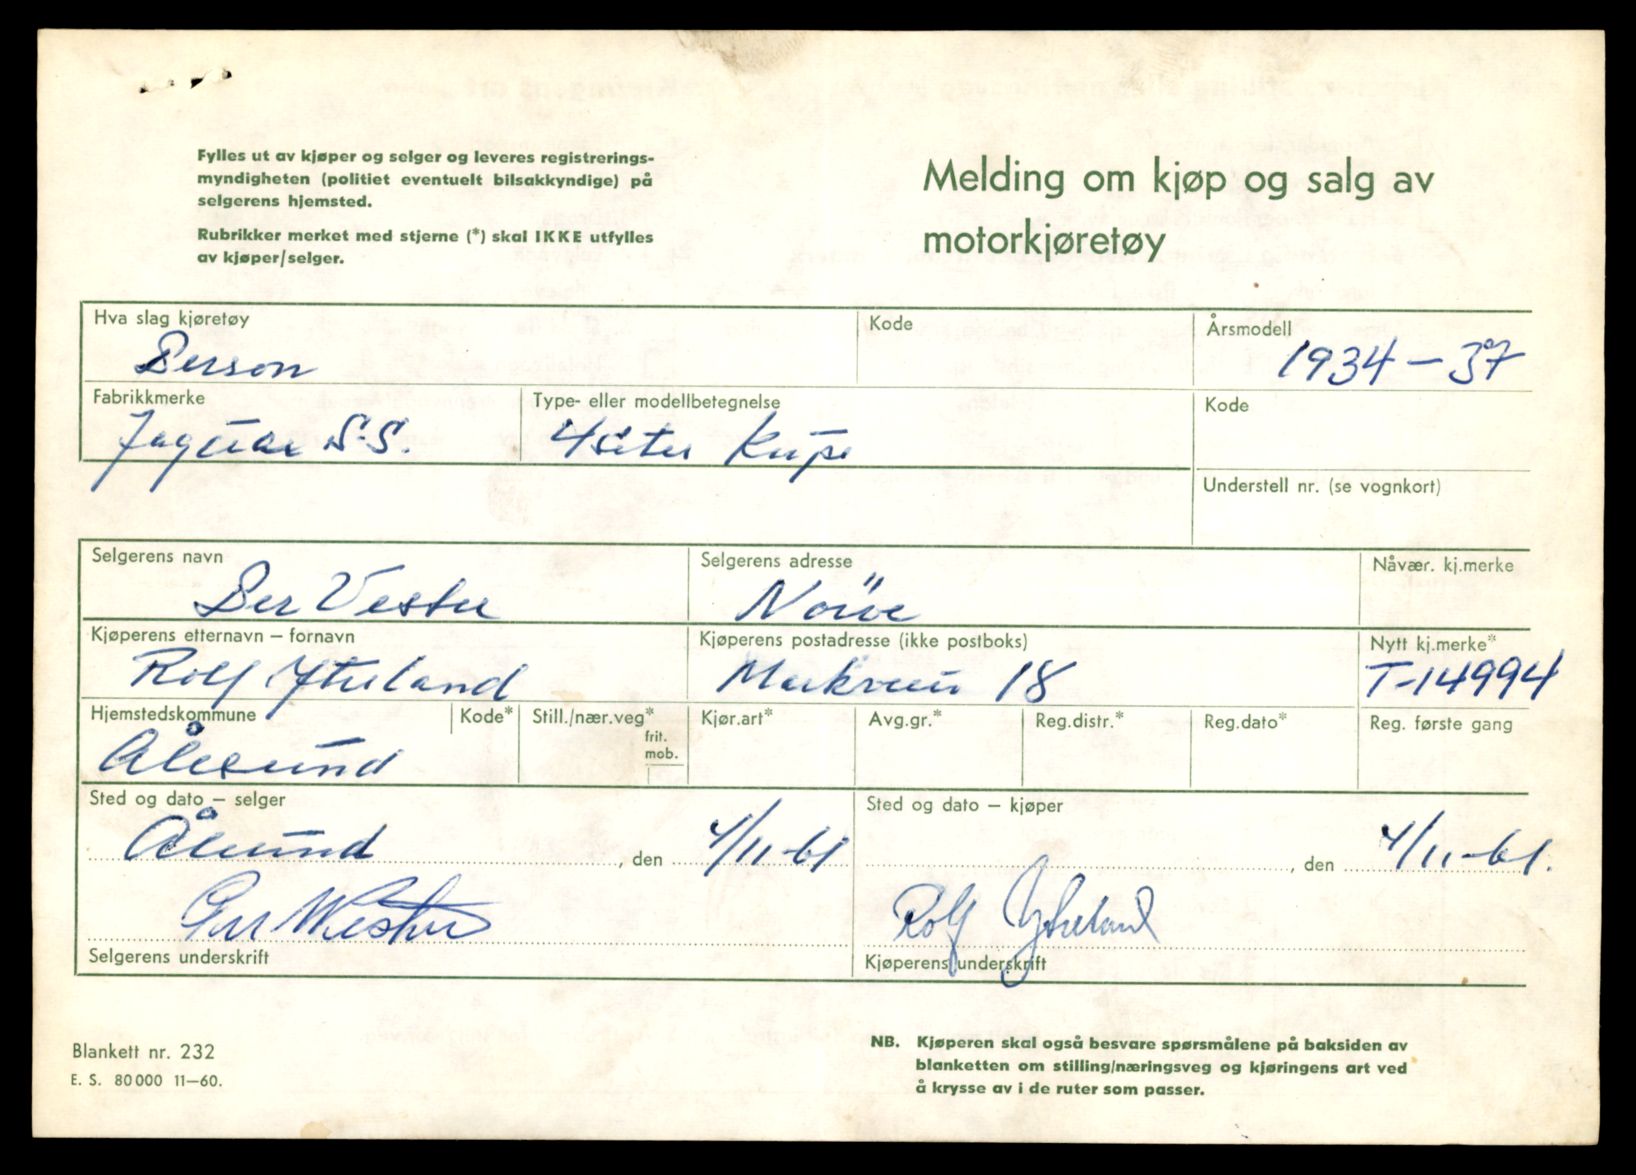 Fylles ut av kjøper og selger og leveres registrerings-
myndigheten (politiet eventuelt bilsakkyndige) på
selgerens hjemsted.
Rubrikker merket med stjerne (*) skal IKKE utfylles
av kjøper/selger.
Melding om kjøp og salg av
motorkjøretøy
Hva slag kjøretøy
Person
Kode
Årsmodell
1934 - 37
Fabrikkmerke
Jaguar S.S.
Type- eller modellbetegnelse
4seter Kupe
Kode
Understell nr. (se vognkort)
Selgerens navn
Per Vester
Selgerens adresse
Nørve
Nåvær. kj.merke
Kjøperens etternavn – fornavn
Rolf Ytreland
Kjøperens postadresse (ikke postboks)
18
Nytt kj.merke*
T-14994
Hjemstedskommune
Ålesund
Kode*
Still./nær.veg*
frit.
mob.
Kjør.art*
Avg.gr.*
Reg.distr.*
Reg.dato*
Reg. første gang
Sted og dato – selger
Ålesund, den 4/11-61
Per Wester
Selgerens underskrift
Sted og dato – kjøper
, den 4/11-61.
Rolf Ytreland
Kjøperens underskrift
Blankett nr. 232
E. S. 80000 11—60.
NB. Kjøperen skal også besvare spørsmålene på baksiden av
blanketten om stilling/næringsveg og kjøringens art ved
å krysse av i de ruter som passer.